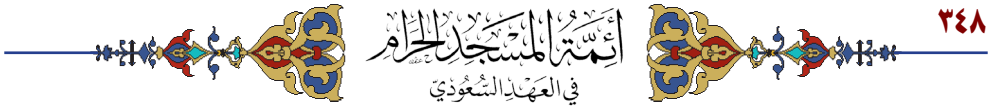 ٣٤٨
أَئِمَّةُ المَسْجِدِ الحَرَامِ
في العَهْدِ السُّعُودِيّ